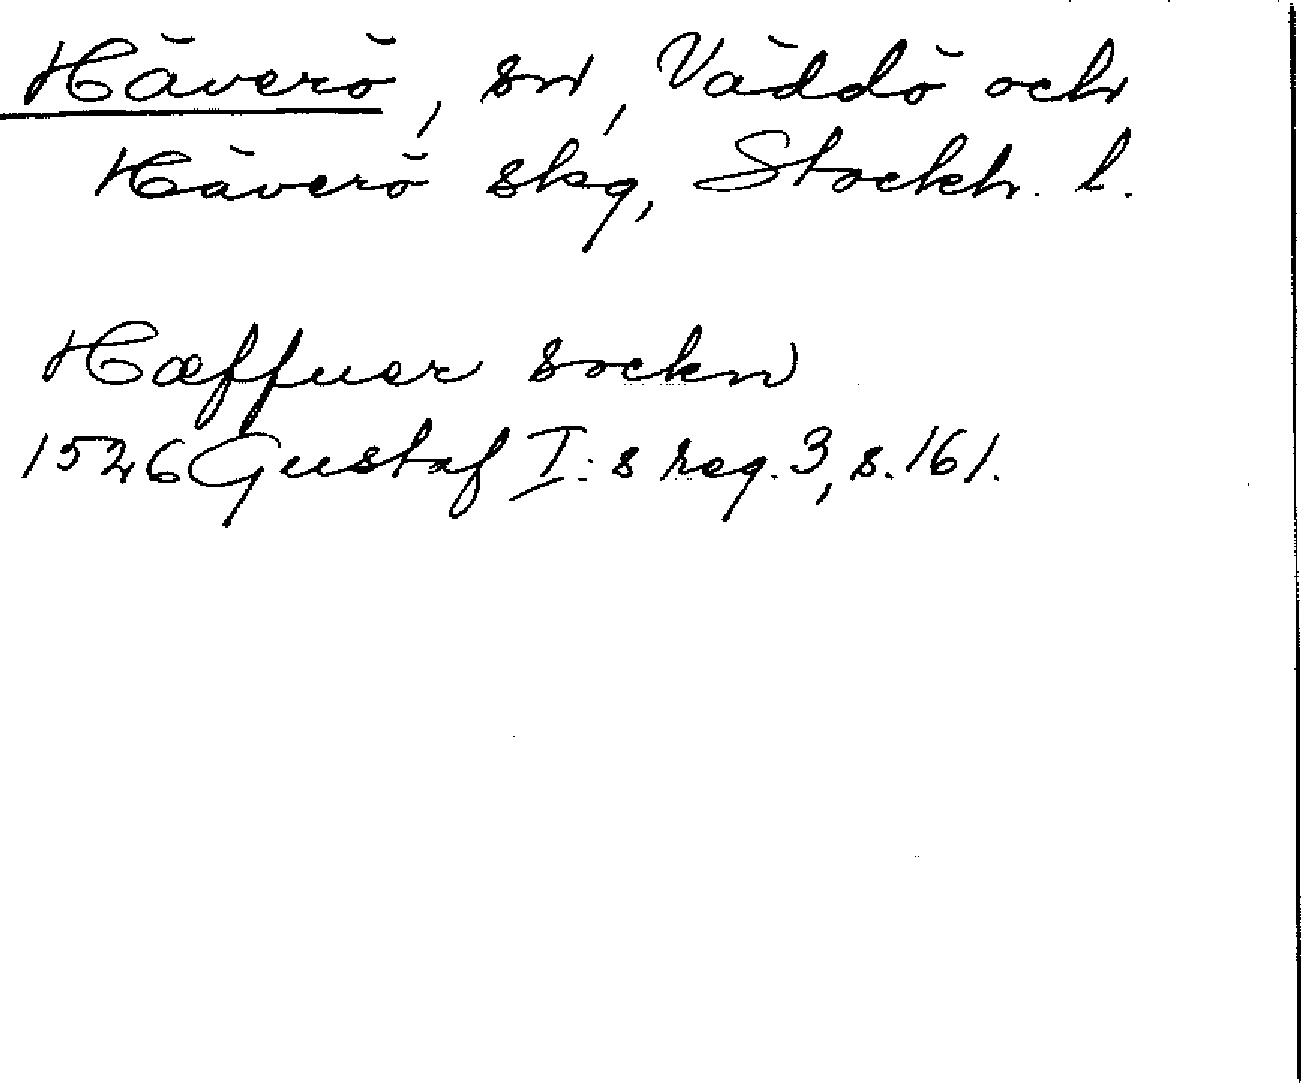 Häverö, sn, Väddö och
Häverö skg, Stockh. l.
Hæffuer sockn
1526 Gustaf I:s reg. 3, s. 161.